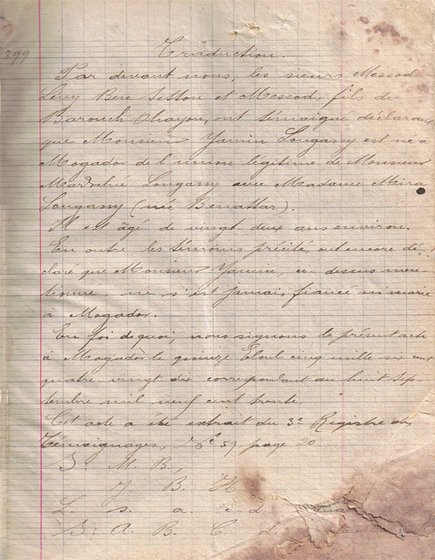 399
Traduction.
Par devant nous, les sieurs Messod
Levy Ben Sellou et Messod, fils de
Barouch Ohayon, ont témoigné déclarant
que Monsieur Yamin Lougassy est né à
Mogador de l'union légitime de Monsieur
Mardochée Lougassy avec Madame Mira
Lougassy (née Benattar).
Il est âgé de vingt deux ans environ.
En outre les témoins précité, ont encore dé-
claré que Monsieur Yamin, ci-dessus men-
tionné ne s'est jamais fiancé ni marié
à Mogador.
En foi de quoi, nous signons le présent acte
à Mogador le quinze Eloul cinq mille six cent
quatre vingt dix correspondant au huit Sep-
tembre mil neuf cent trente.
Cet acte a été extrait du 3e Registre des
Témoignages, No 59 page 20.
S. M. B.,
J. B. H
L s. a e d
S. A. B. C. L